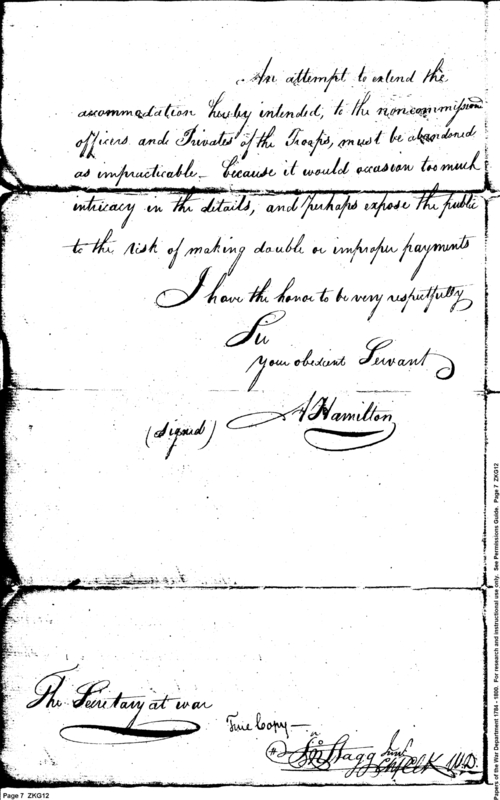 An attempt to extend the
accommodation hereby intended, to the noncommissioned
officers and Privates of the Troops, must be abandoned
as impracticable – because it would occasion too much
intricacy in the details, and perhaps expose the public
to the risk of making double or improper payments
I have the honor to be very respectfully
Sir
Your obedient Servant
A Hamilton
(signed)
The Secretary at war
True Copy –
Jn Stagg Junr
Ch Clk W.D.
Page 7 ZKG12
Papers of the War Department 1784 - 1800. For research and instructional use only. See Permissions Guide. Page 7 ZKG12